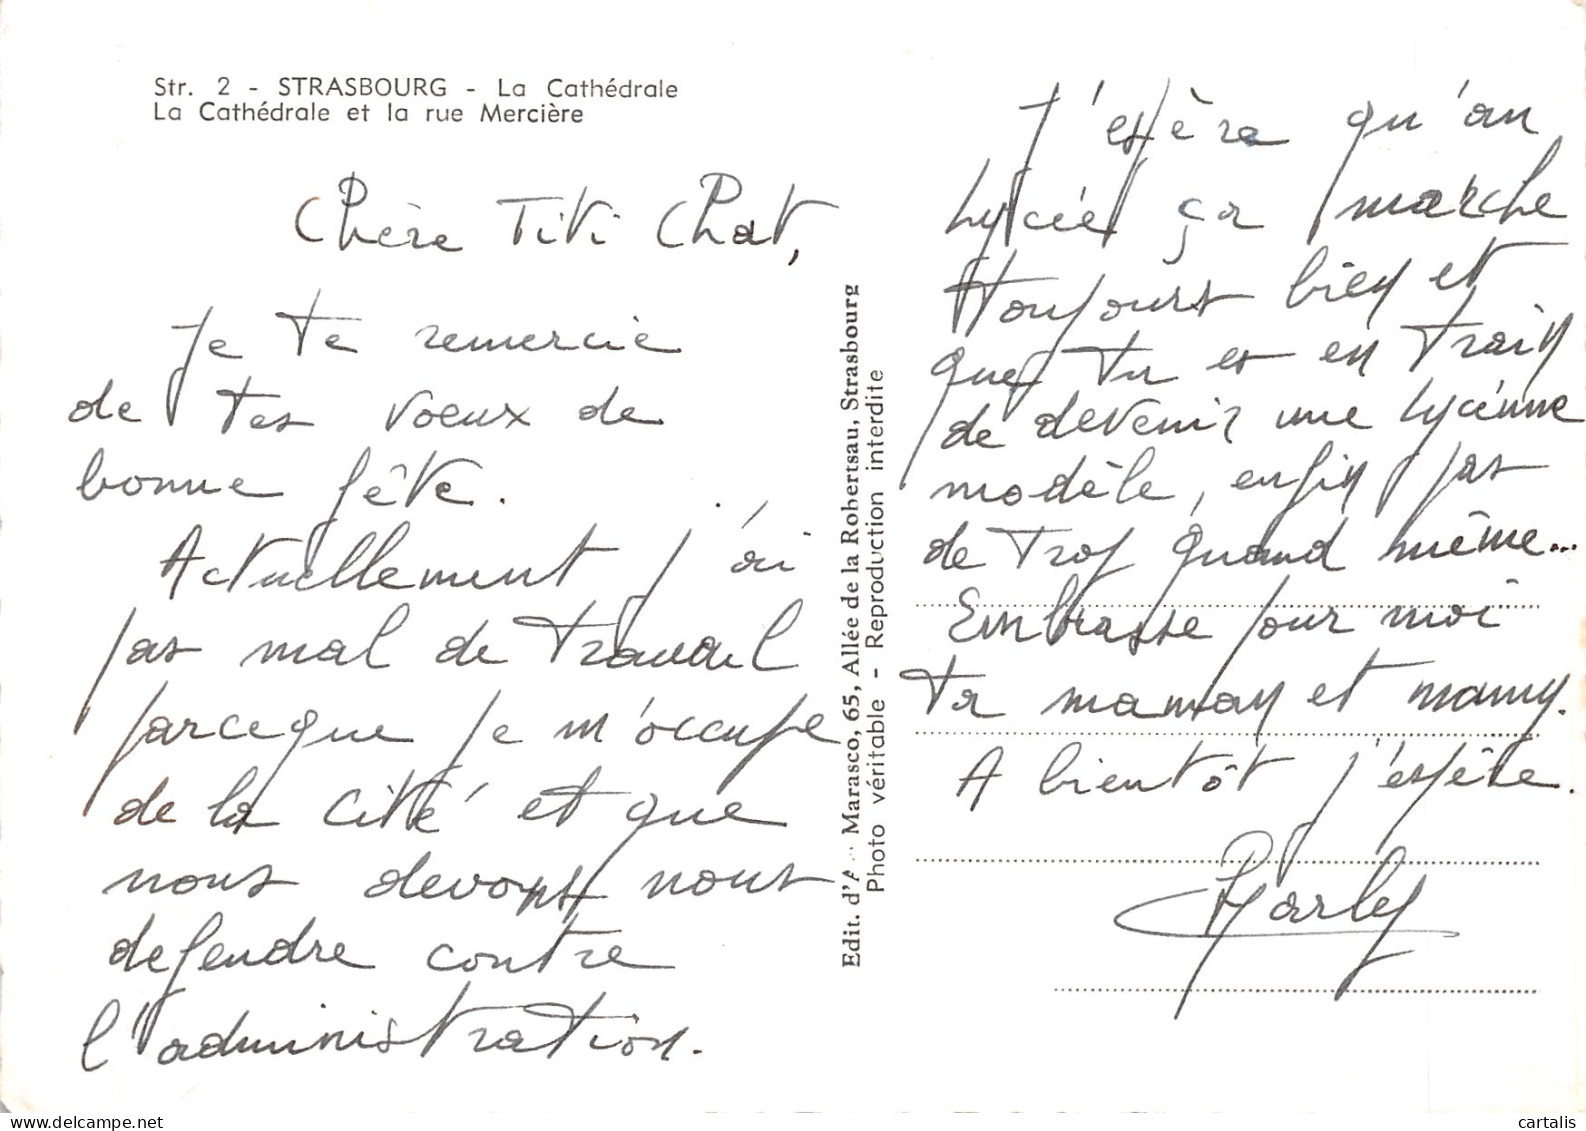 Str. 2 - STRASBOURG - La Cathédrale
La Cathédrale et la rue Mercière
Chère Titi Chat,
Je te remercie
de tes voeux de
bonne fête.
Actuellement j'ai
pas mal de travail
parceque je m'occupe
de la cité et que
nous devons nous
defendre contre
l'administration.
Edit. d'A Marasco, 65, Allée de la Robertsau, Strasbourg
Photo véritable - Reproduction interdite
J'espère qu'au
Lycée ça marche
toujours bien et
que tu es en train
de devenir une lycéenne
modèle, enfin pas
de trop quand même...
Embrasse pour moi
ta maman et mamy.
A bientôt j'espère.
Marley
www.delcampe.net
cartalis